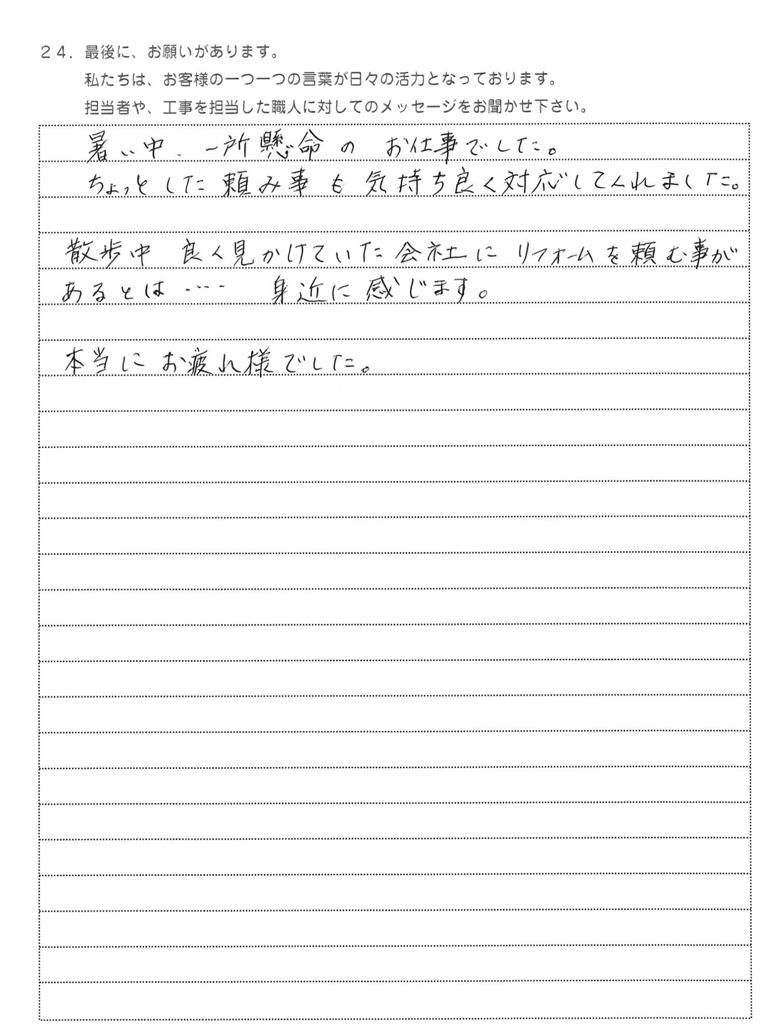 24. 最後に、お願いがあります。
私たちは、お客様の一つ一つの言葉が日々の活力となっております。
担当者や、工事を担当した職人に対してのメッセージをお聞かせ下さい。
暑い中、一所懸命の お仕事でした。
ちょっとした頼み事も気持ち良く対応してくれました。
散歩中 良く見かけていた会社に リフォームを頼む事が
あるとは‥‥ 身近に感じます。
本当にお疲れ様でした。